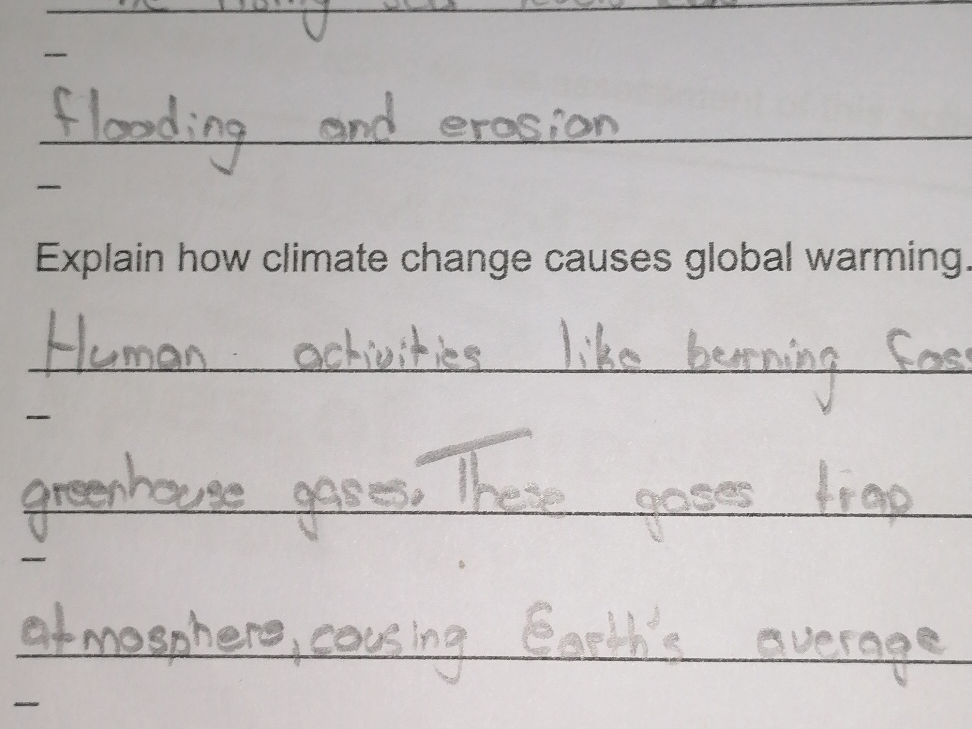 rising sea levels
flooding and erosion
Explain how climate change causes global warming.
Human activities like berning
greenhouse gases. These gases trap
atmosphere, cousing Earth's average